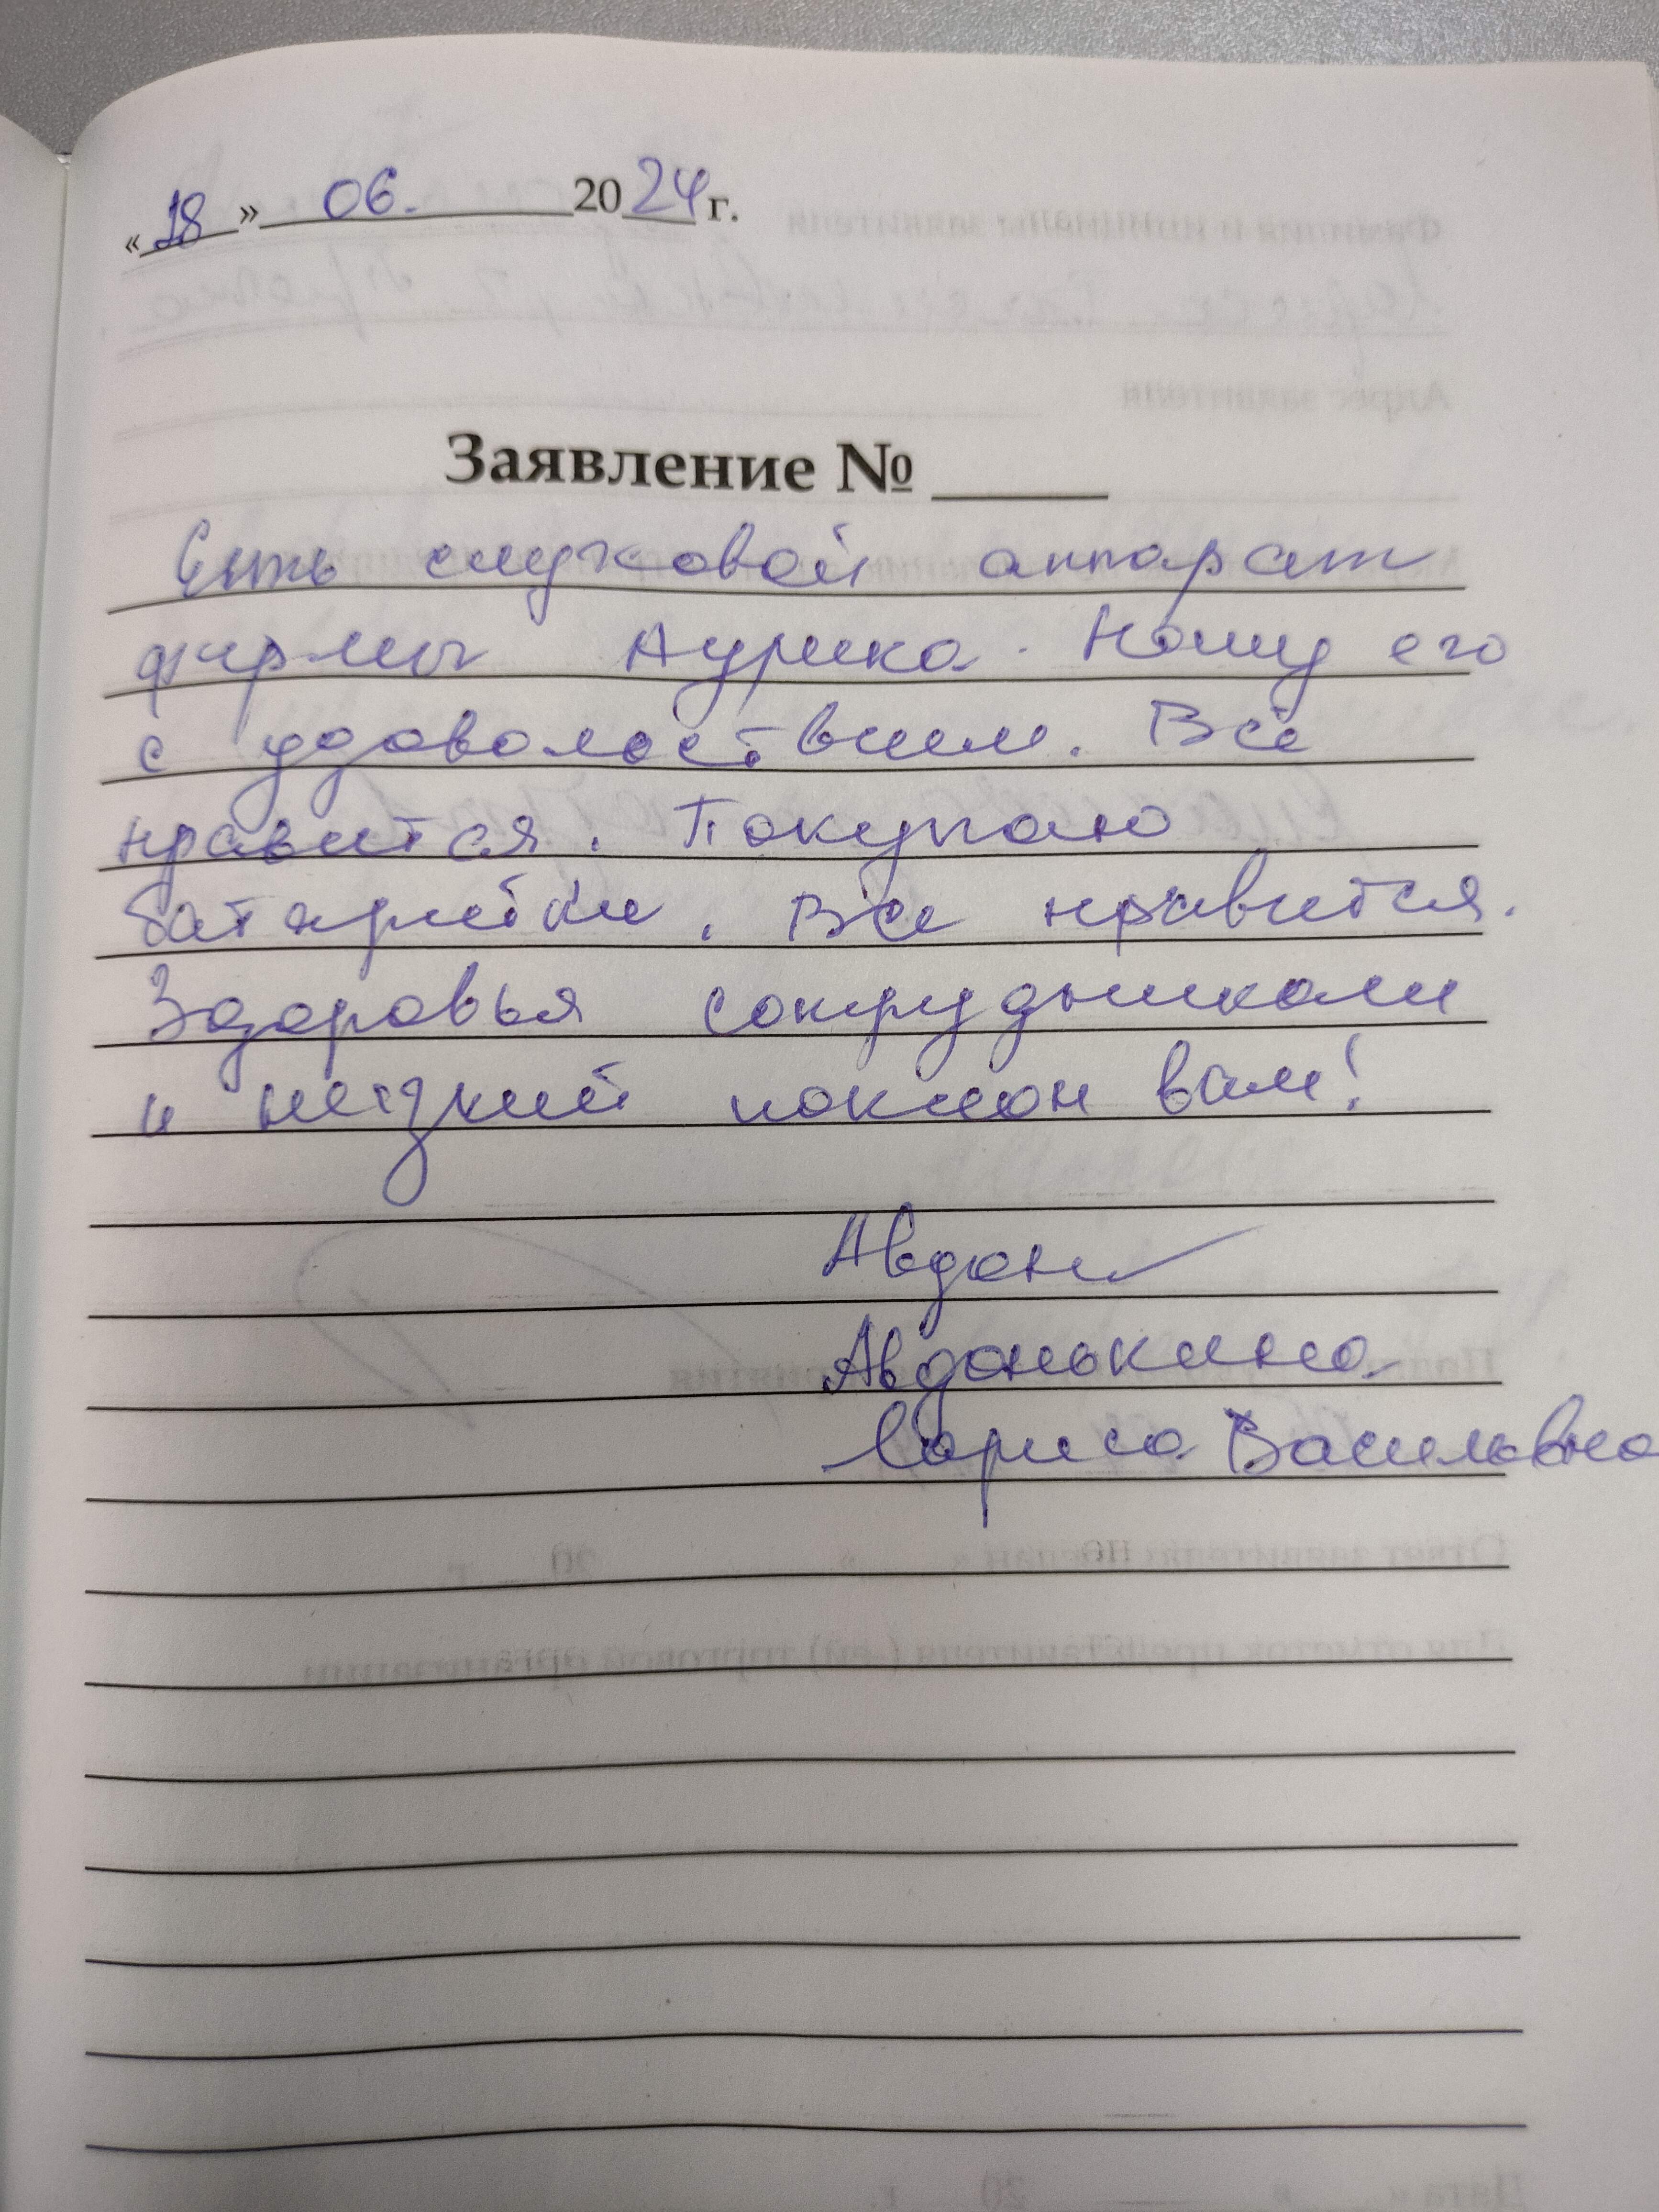 «18» 06. 2024 г.
Заявление № ____
Есть слуховой аппарат
фирмы Аурика. Ношу его
с удовольствием. Всё
нравится. Покупаю
батарейки. Все нравится.
Здоровья сотрудникам
и низкий поклон вам!
Авдон
Авдонькина
Лариса Васильевна